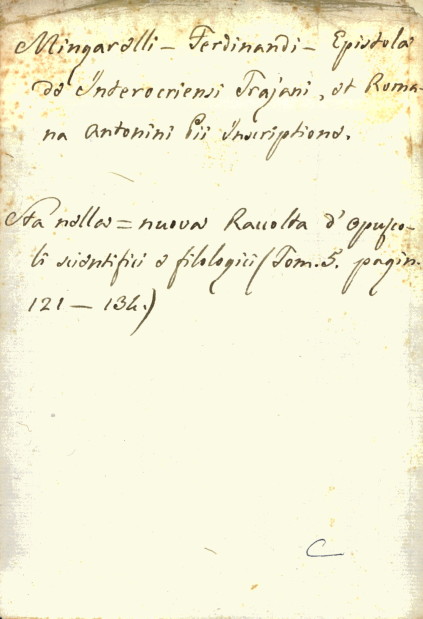 Mingarelli - Ferdinandi - Epistola
de Interocriensi Trajani, et Roma-
na Antonini Pii Inscriptione.
Sta nella = nuova Raccolta d'opusco-
li scientifici e filologici (Tom. 5. pagin.
121 - 134.)
C